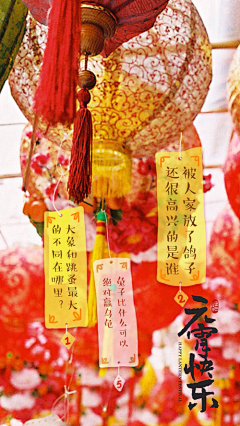 被人家放了鸽子
还很高兴的是谁
2
大象和跳蚤最大
的不同在哪里？
1
兔子比什么可以
绝对赢乌龟
5
元宵快乐
HAPPY LANTERN FESTIVAL